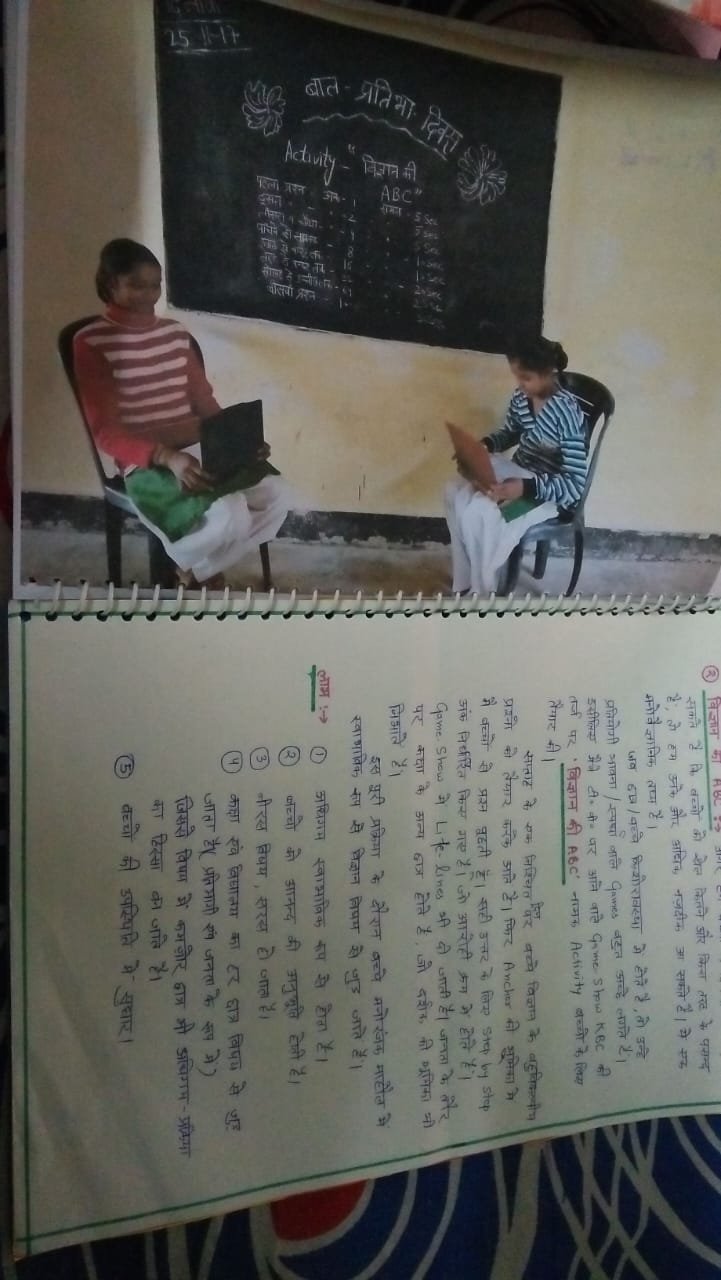 दिनांक
25-11-17
बाल-प्रतिभा-दिवस
Activity - "विज्ञान की
ABC"
पहला प्रश्न - अंक - 1 समय - 5 Sec
दूसरा 2 5 Sec
② विज्ञान की ABC :→
सकते हैं कि बच्चों को खेल कितने और किस तरह के पसन्द
है, तो हम उनके और अधिक नजदीक आ सकते हैं। ये सब
मनोवैज्ञानिक तथ्य है।
जब छात्र/बच्चे किशोरावस्था में होते हैं, तो उन्हें
प्रतियोगी भावना/स्पर्धा वाले Games बहुत अच्छे लगते हैं।
इसीलिए मैंने टी० वी० पर आने वाले Game Show KBC की
तर्ज पर 'विज्ञान की ABC' नामक Activity बच्चों के लिए
तैयार की।
सप्ताह के एक निश्चित दिन पर बच्चे विज्ञान के बहुविकल्पीय
प्रश्नों को तैयार करके आते हैं। फिर Anchor की भूमिका में
मैं बच्चों से प्रश्न पूछती हूँ। सही उत्तर के लिए Step by Step
अंक निर्धारित किए गए हैं। जो आरोही क्रम में होते हैं।
Game Show में Life-lines भी दी जाती हैं। जनता के तौर
पर कक्षा के अन्य छात्र होते हैं, जो दर्शक की भूमिका भी
निभाते हैं।
इस पूरी प्रक्रिया के दौरान बच्चे मनोरंजक माहौल में
स्वाभाविक रूप से विज्ञान विषय से जुड़ जाते हैं।
लाभ :→
① अधिगम स्वाभाविक रूप से होता है।
② बच्चों को आनन्द की अनुभूति होती है।
③ नीरस विषय, सरस हो जाता है।
④ कक्षा एवं विद्यालय का हर छात्र विषय से जुड़
जाता है। (प्रतिभागी एवं जनता के रूप में)
जिससे विषय में कमजोर छात्र भी अधिगम-प्रक्रिया
का हिस्सा बन जाते हैं।
⑤ बच्चों की उपस्थिति में सुधार।